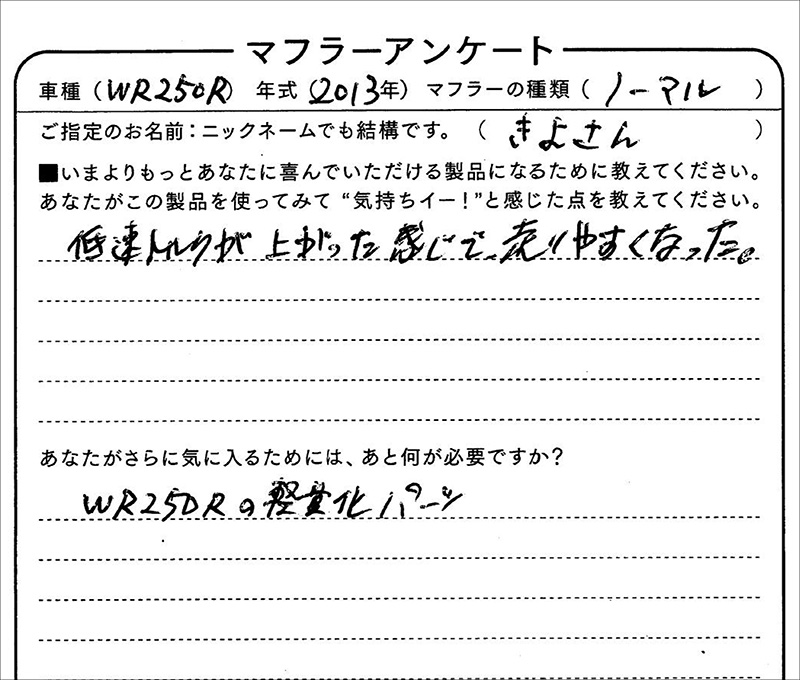 マフラーアンケート
車種（WR250R） 年式（2013年） マフラーの種類（ ノーマル ）
ご指定のお名前：ニックネームでも結構です。（ きよさん ）
■いまよりもっとあなたに喜んでいただける製品になるために教えてください。
あなたがこの製品を使ってみて“気持ちイー！”と感じた点を教えてください。
低速トルクが上がった感じで、走りやすくなった。
あなたがさらに気に入るためには、あと何が必要ですか？
WR250Rの軽量化パーツ